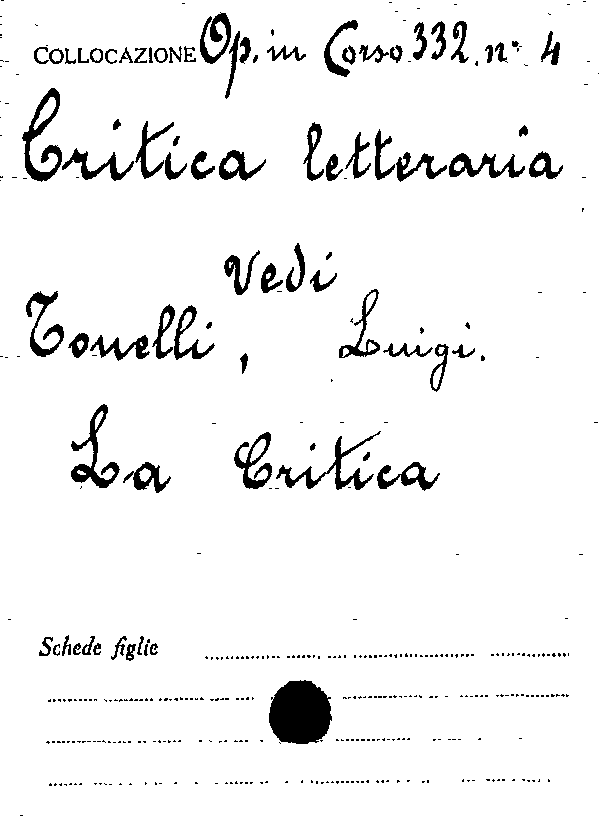 COLLOCAZIONE Op. in Corso 332. n° 4
Critica letteraria
Vedi
Tonelli, Luigi.
La Critica
Schede figlie